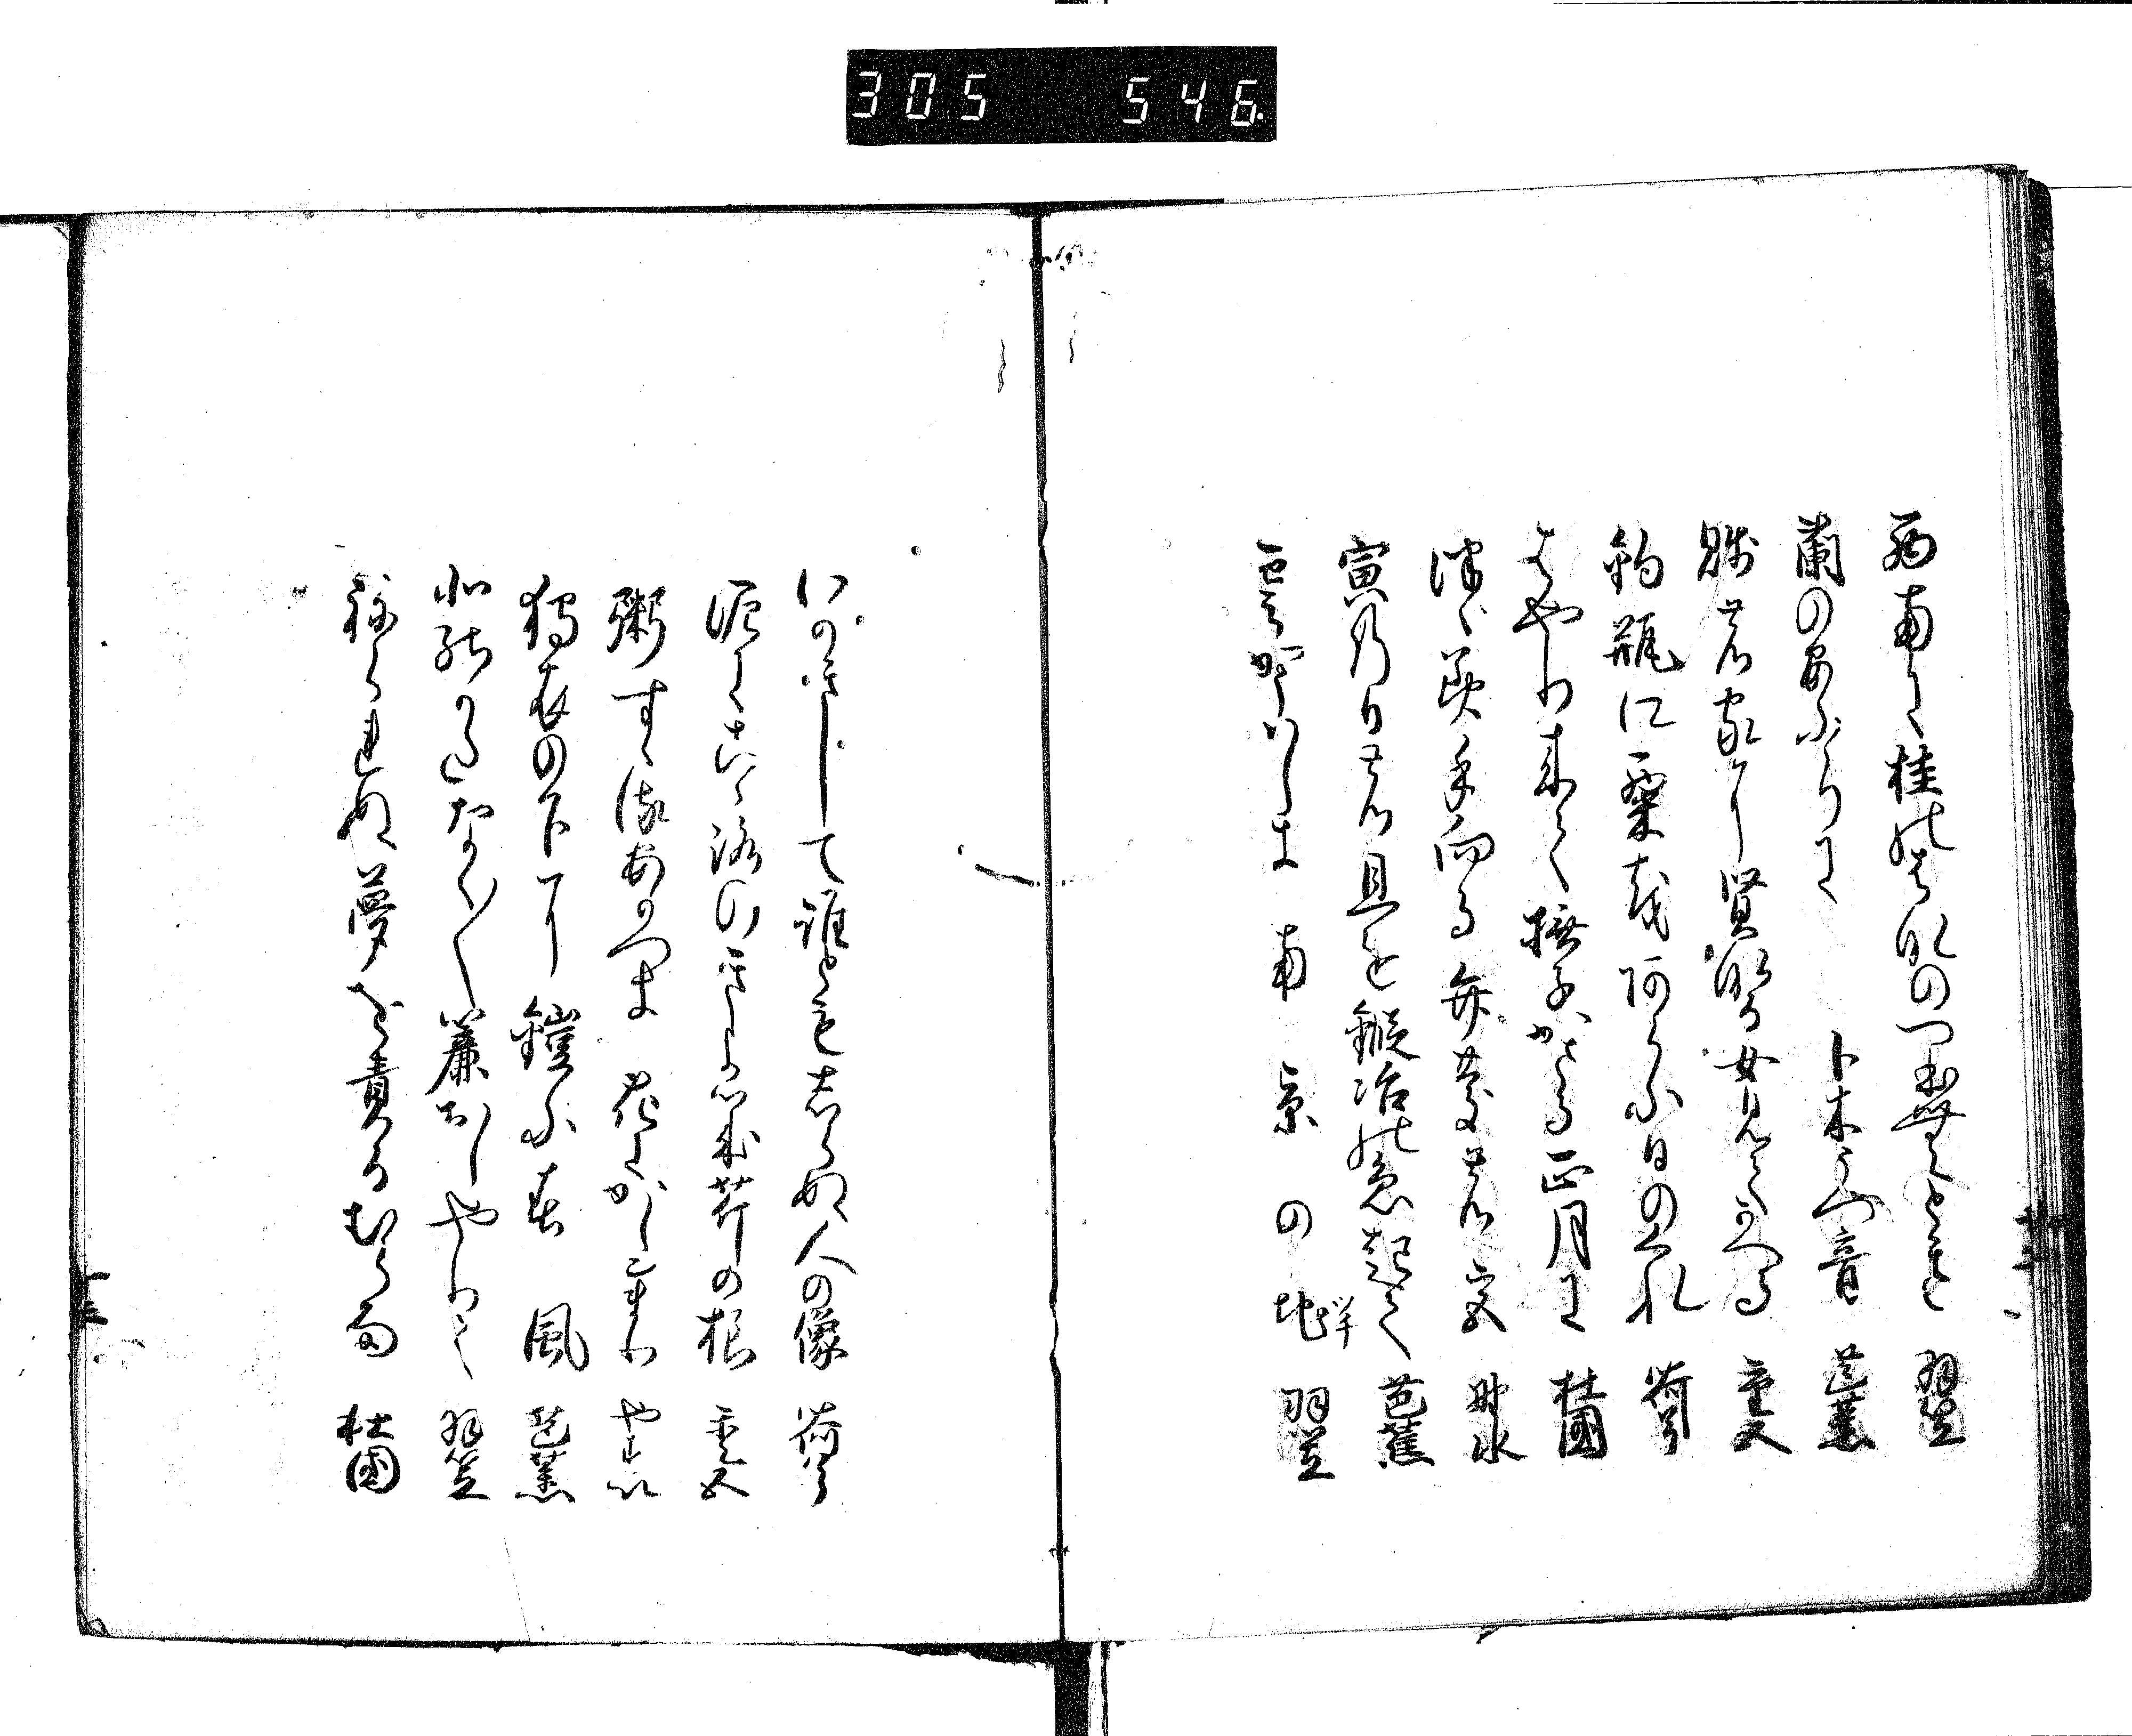 305 546
西南に桂のはなのつぼむとき 羽笠
蘭のあぶらに卜木うつ音 芭蕉
賤の家に賢なる女見てかへる 重五
釣瓶に粟をあらふ日のくれ 荷兮
はやり来て撫子かざる正月に 杜国
つゞみ手向る弁慶の宮 野水
寅の日の旦を鍛冶の急起て 芭蕉
雲かうばしき南京の地 羽笠
いがきして誰ともしらぬ人の像 荷兮
泥にこゝろのきよき芹の根 重五
粥すゝるあかつき花にかしこまり やすい
狩衣の下に鎧ふ春風 芭蕉
北のかたなく〳〵簾おしやりて 羽笠
ねられぬ夢を責るむら雨 杜国